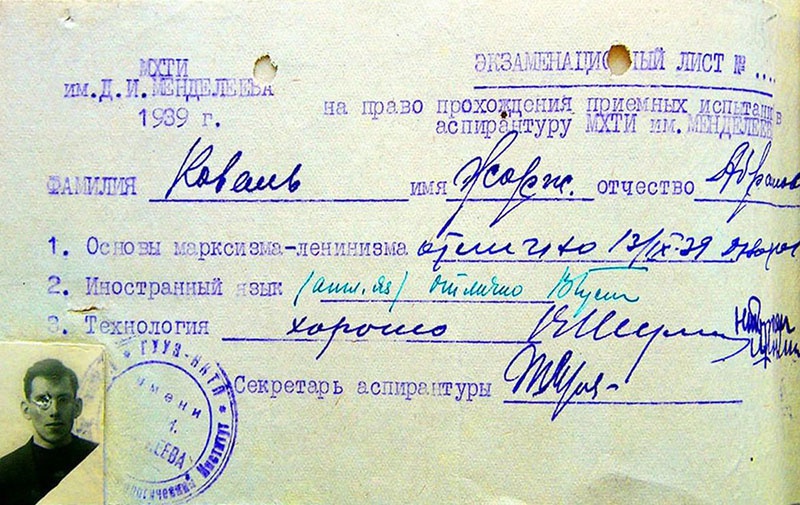 МХТИ
им. Д. И. МЕНДЕЛЕЕВА
1939 г.
ЭКЗАМЕНАЦИОННЫЙ ЛИСТ № ....
на право прохождения приемных испытаний в
аспирантуру МХТИ им. МЕНДЕЛЕЕВ
ФАМИЛИЯ Коваль имя Жорж. отчество Абрамов
1. Основы марксизма-ленинизма отлично 13/IX-39
2. Иностранный язык (англ. яз) отлично
3. Технология хорошо
Секретарь аспирантуры
имени